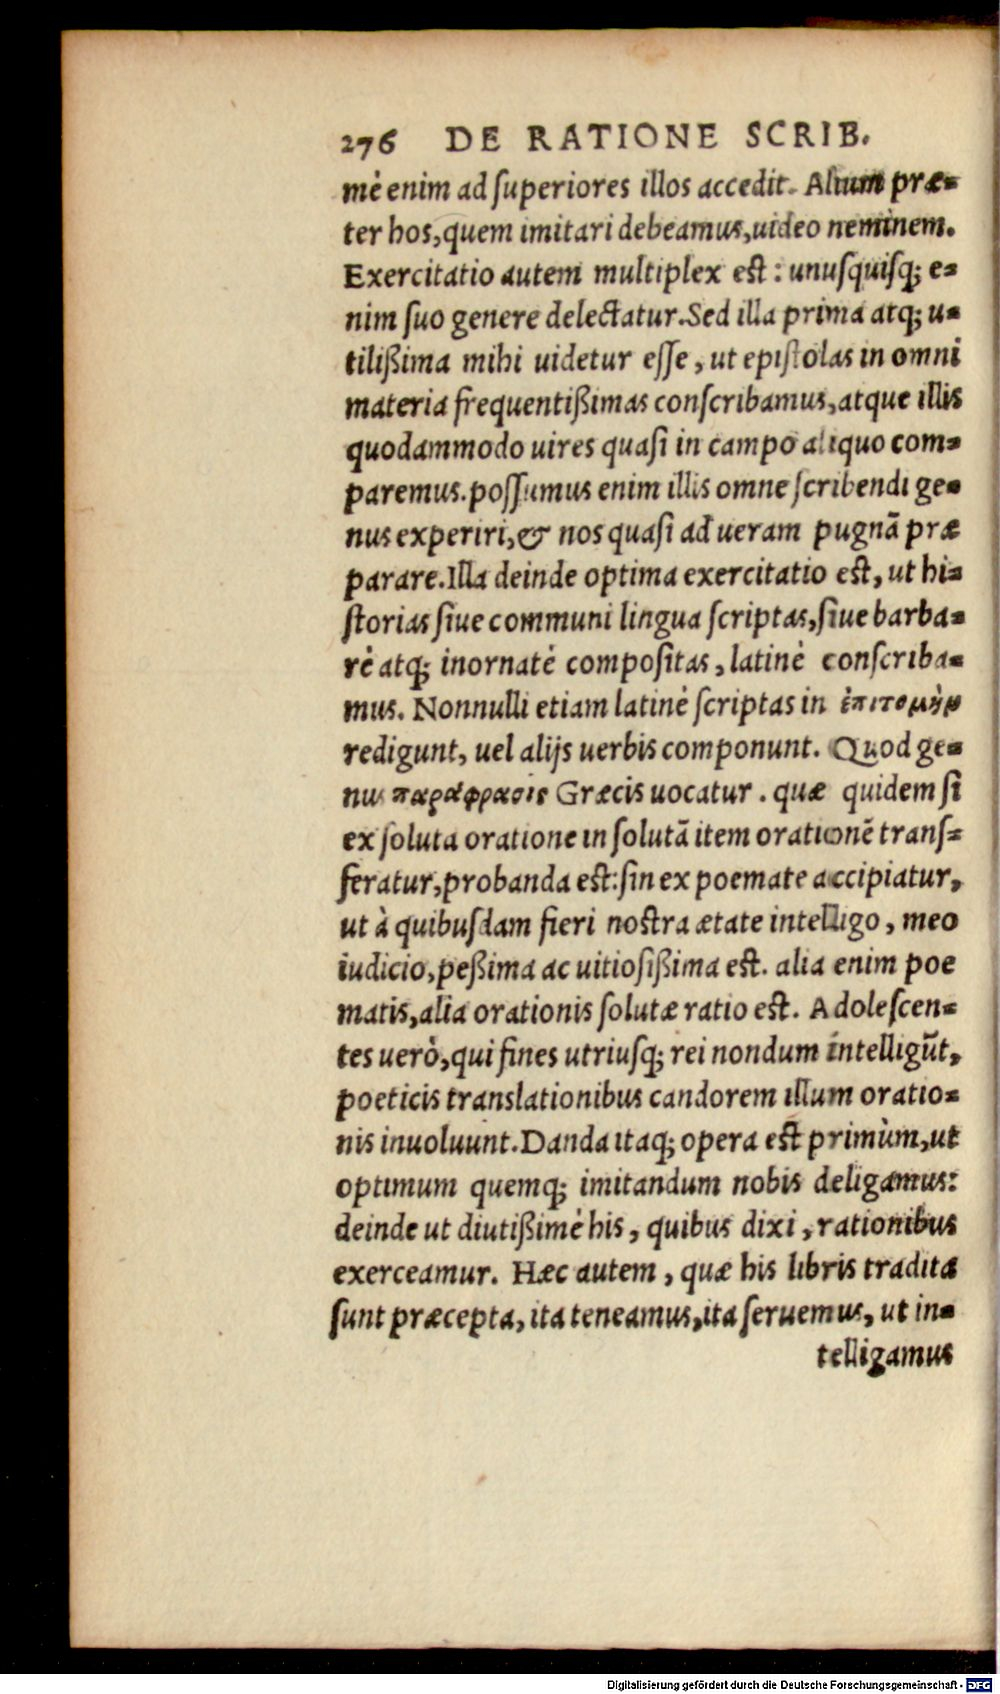 276 DE RATIONE SCRIB.
mè enim ad ſuperiores illos accedit. Alium præ-
ter hos, quem imitari debeamus, uideo neminem.
Exercitatio autem multiplex est: unuſquiſq; e-
nim ſuo genere delectatur. Sed illa prima atq; u-
tilißima mihi uidetur eſſe, ut epiſtolas in omni
materia frequentißimas conſcribamus, atque illis
quodammodo uires quaſi in campo aliquo com-
paremus. poſſumus enim illis omne ſcribendi ge-
nus experiri, & nos quaſi ad ueram pugnã præ
parare. Illa deinde optima exercitatio est, ut hi-
ſtorias ſiue communi lingua ſcriptas, ſiue barba-
rè atq; inornatè compoſitas, latinè conſcriba-
mus. Nonnulli etiam latinè ſcriptas in ἐπιτομὴν
redigunt, uel alijs uerbis componunt. Quod ge-
nus παράφρασις Græcis uocatur. quæ quidem ſi
ex ſoluta oratione in ſolutã item orationẽ tranſ-
feratur, probanda est: ſin ex poemate accipiatur,
ut à quibuſdam fieri nostra ætate intelligo, meo
iudicio, peßima ac uitioſißima est. alia enim poe
matis, alia orationis ſolutæ ratio est. Adoleſcen-
tes uerò, qui fines utriuſq; rei nondum intelligũt,
poeticis translationibus candorem illum oratio-
nis inuoluunt. Danda itaq; opera est primùm, ut
optimum quemq; imitandum nobis deligamus:
deinde ut diutißimè his, quibus dixi, rationibus
exerceamur. Hæc autem, quæ his libris tradita
ſunt præcepta, ita teneamus, ita ſeruemus, ut in-
telligamus
Digitalisierung gefördert durch die Deutsche Forschungsgemeinschaft - DFG